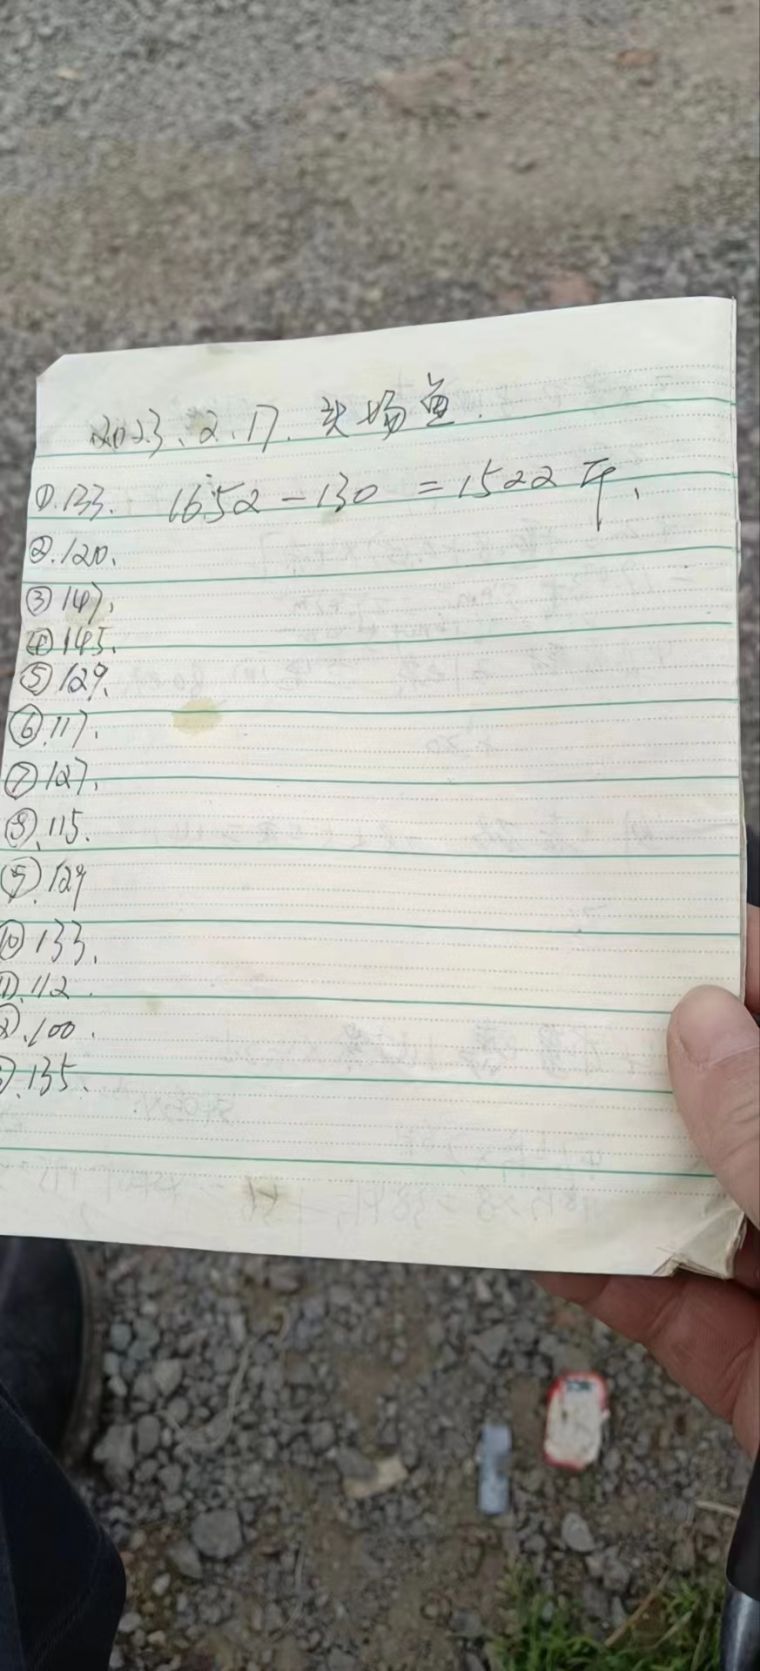 2023、2、17、头场鱼.
①.133. 1652-130=1522斤、
②.120、
③147、
④145.
⑤129、
⑥.117.
⑦127.
⑧.115.
⑨.129
⑩133.
⑪.112.
⑫.100.
⑬.135.